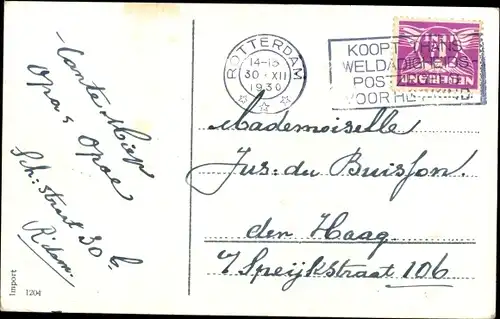 Tante Miep
Opa & Opoe
Sch: straat 30 b.
R'dam.
ROTTERDAM
14-15
30 XII
1930
KOOPT THANS
WELDADIGHEIDS
POST
VOOR HET KIND
NEDERLAND
Mademoiselle
Jus: du Buisson.
den Haag
v Speijkstraat 106
Import
1204